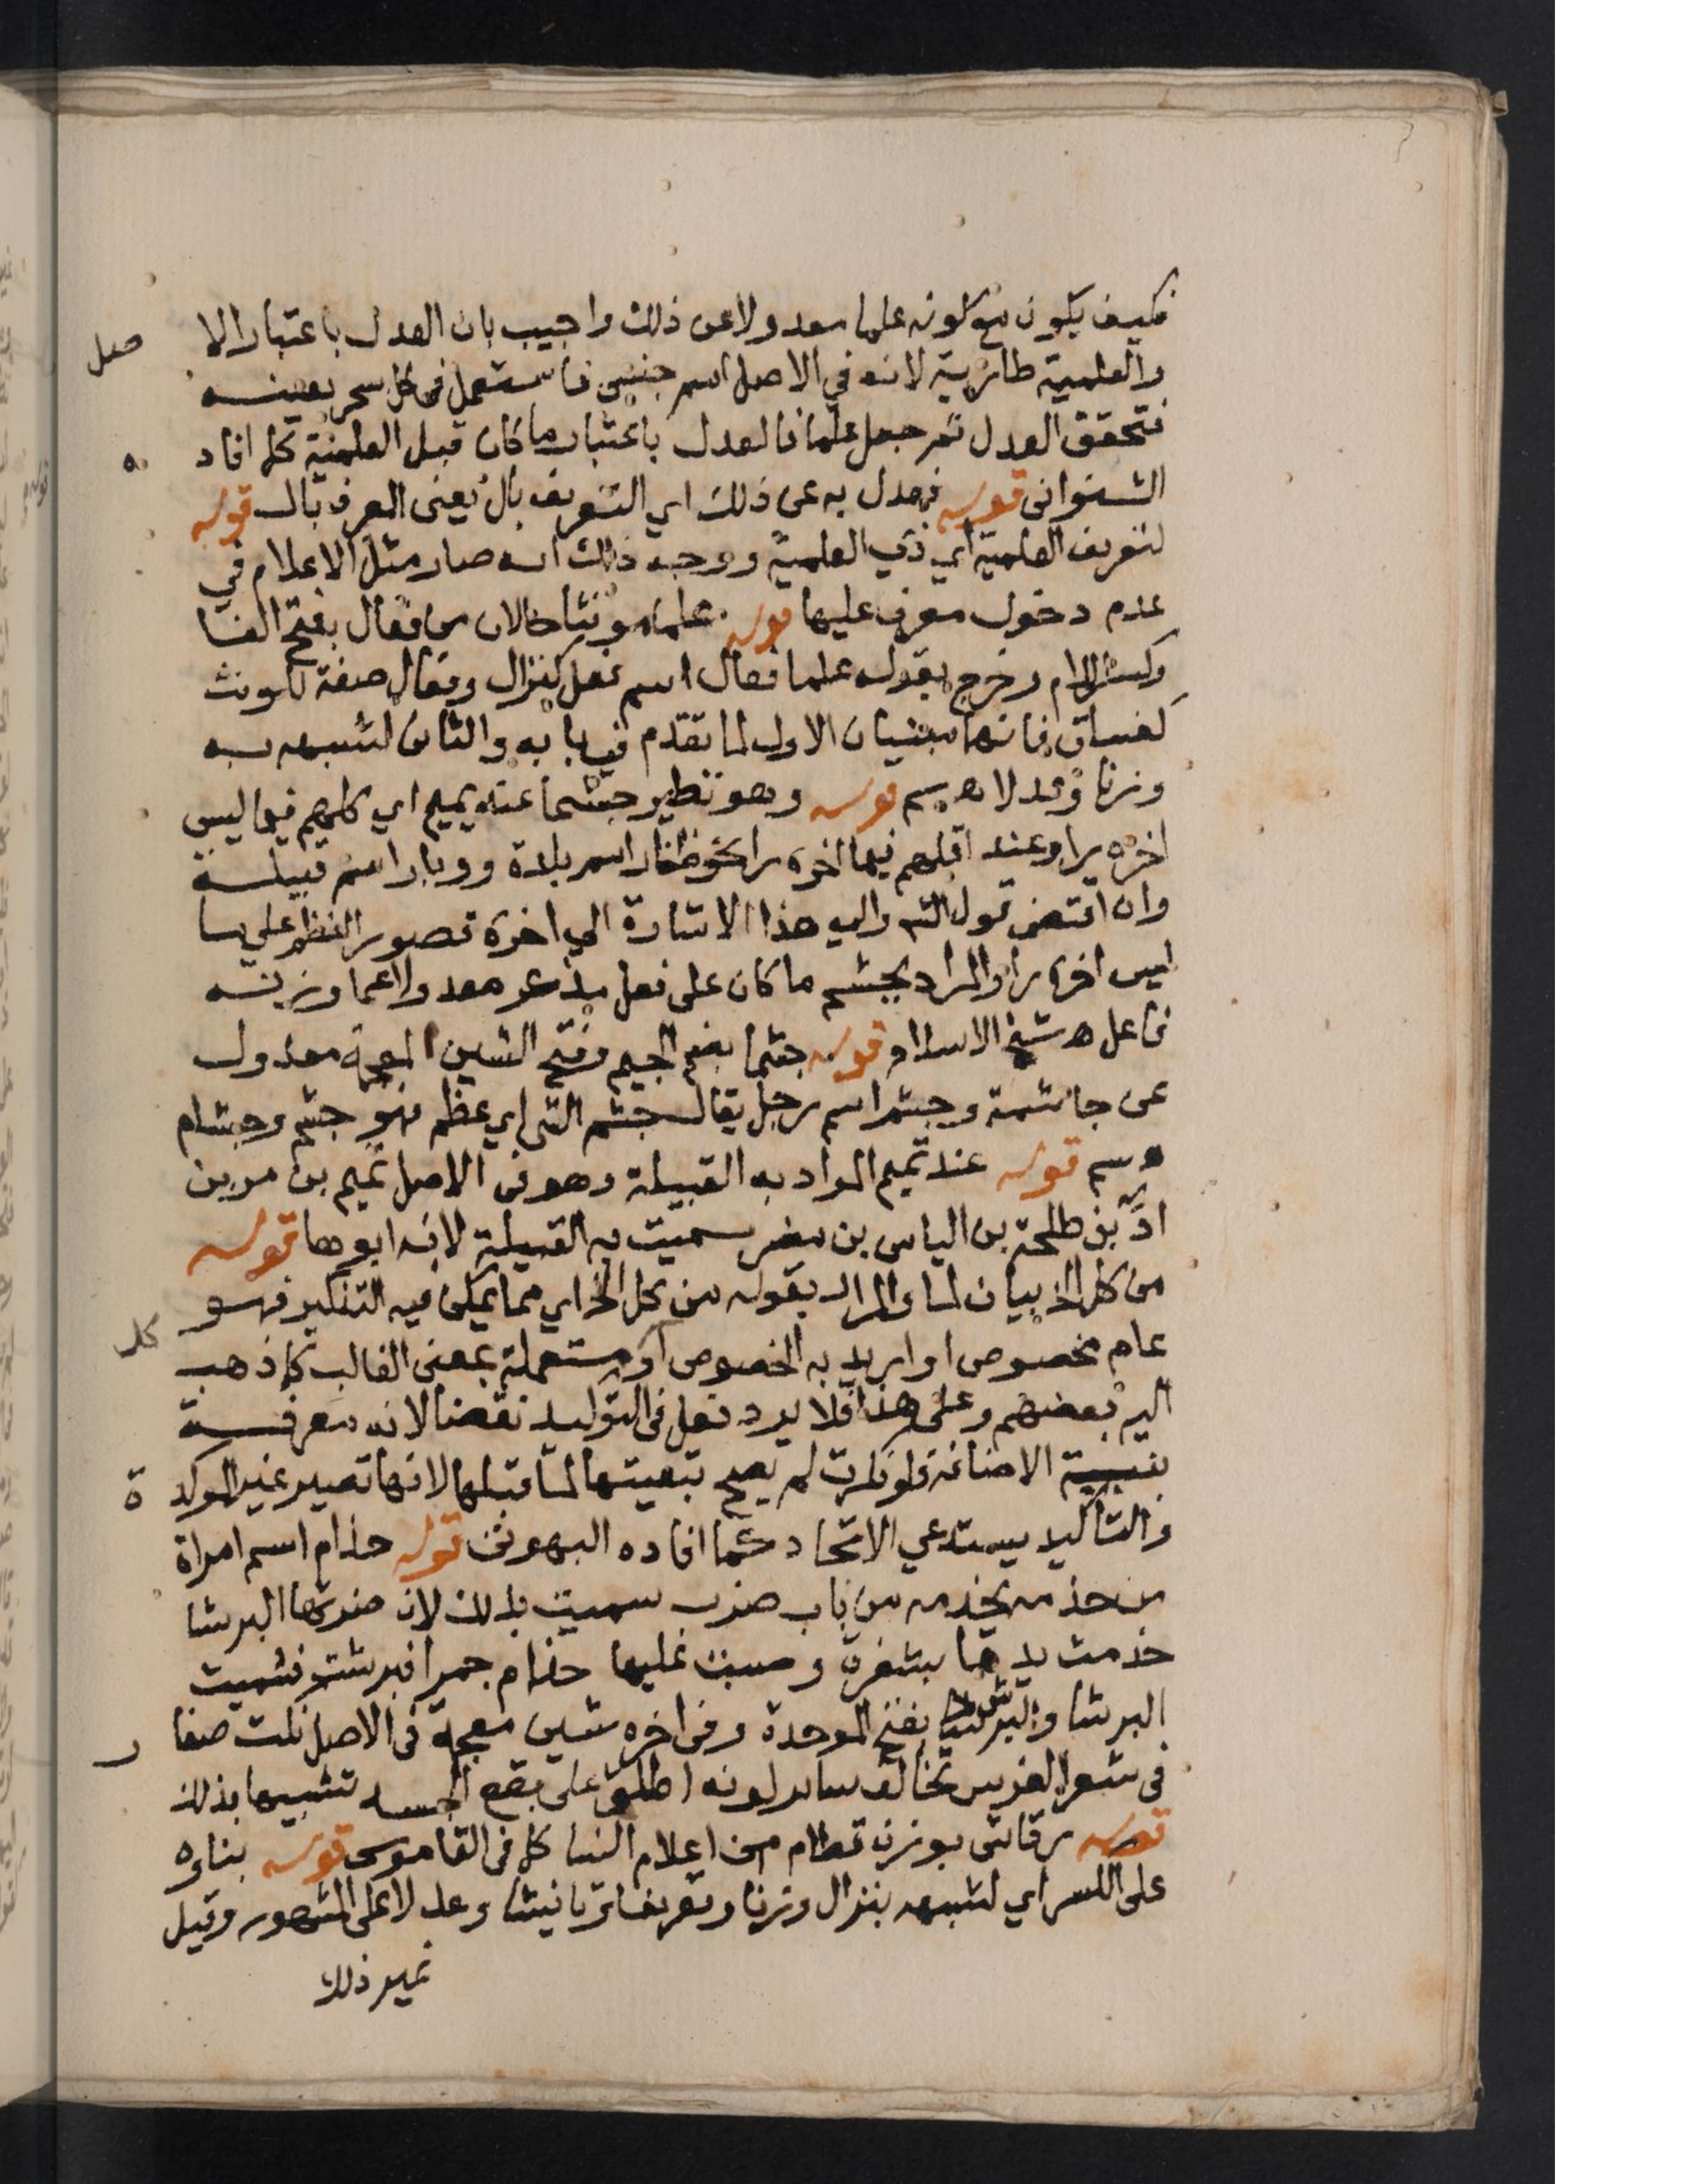 فكيف يكون مع كونه علما معدولا عن ذلك واجيب بان العدل باعتبار الا صل
والعلمية طارئية لانه في الاصل اسم جنس فاستعمل في كل سحر بعينه
فتحقق العدل ثم جعل علما فالعدل باعتبار ما كان قبل العلمية كما افاد ه
الشنواني قوله فعدل به عن ذلك اي التعريف بال يعني المعرف بال قوله
لتعريف العلمية اي ذي العلمية ووجه ذلك انه صار مثل الاعلام في
عدم دخول معرف عليها قوله علما مونثا حالان من فعال بفتح الفا
وكسر اللام وخرج بقوله علما فعال اسم فعل كنزال وفعال صفة لمونث
كفساق فانهما مبنيان الاول لما تقدم في بابه والثاني لشبهه به
وزنا وعدلا ه سم قوله وهو نظير جشما عند تميم اي كلهم فيما ليس
اخره را وعند اقلهم فيما اخره را كنحو ظفار اسم بلدة ووبار اسم قبيلة
وان اقتضى قول الش واليه هذا الاشارة الى اخره قصور النظم على ما
ليس اخره را والمراد بجشم ما كان على فعل مذكر معدولا عما وزنه
فاعل ه شيخ الاسلام قوله جشما بضم الجيم وفتح الشين المعجمة معدول
عن جاشمة وجشم اسم رجل يقال جشم الشي اي عظم فهو جشم وجشام
ه سم قوله عند تميم المراد به القبيلة وهو في الاصل تميم بن مر بن
اد بن طلحة بن الياس بن مضر سميت به القبيلة لانه ابوها قوله
من كل الخ بيان لما والمراد بقوله من كل الخ اي مما يمكن فيه التنكير فهو
عام مخصوص او اريد به الخصوص او كل مستعملة بمعنى الغالب كما ذهب
اليه بعضهم وعلى هذا فلا يرد فعل في التوكيد نقضا لانه معرفة
بنية الاضافة فلو نكرت لم يصح تبعيتها لما قبلها لانها تصير غير الموكد ة
والتاكيد يستدعي الاتحاد كما افاده البهوتي قوله حذام اسم امراة
من حذمه يحذمه من باب ضرب سميت بذلك لان ضرتها البرشا
حذمت يدها بشفرة وصبت عليها حذام جمرا فبرشت فسميت
البرشا والبرش بفتح الموحدة وفي اخره شين معجمة في الاصل نكت صغا ر
في شعر الفرس تخالف سائر لونه اطلق على بقع الجسد تشبيها بذلك
قوله رقاش بوزن قطام من اعلام النسا كما في القاموس قوله بناوه
على الكسر اي لشبهه بنزال وزنا وتعريفا وتانيثا وعدلا على المشهور وقيل
غير ذلك